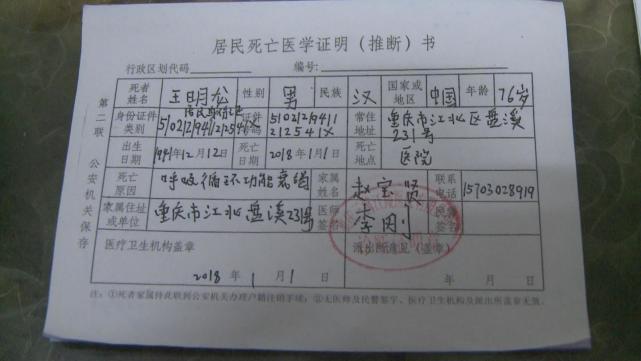 居民死亡医学证明（推断）书
行政区划代码 编号:
死者姓名 王明龙 性别 男 民族 汉 国家或地区 中国 年龄 76岁
身份证件类别 居民身份证 证件号码 常住地址 重庆市江北区盘溪231号
出生日期 1941年12月12日 死亡日期 2018年1月1日 死亡地点 医院
死亡原因 呼吸循环功能衰竭 家属姓名 赵宝贤 联系电话 15703028919
家属住址或单位 重庆市江北盘溪231号 医师签名 李刚 民警签名
医疗卫生机构盖章 派出所意见（盖章）
2018年1月1日 年 月 日
注：①死者家属持此联到公安机关办理户籍注销手续；②无医师及民警签字、医疗卫生机构及派出所盖章无效。
第二联 公安机关保存